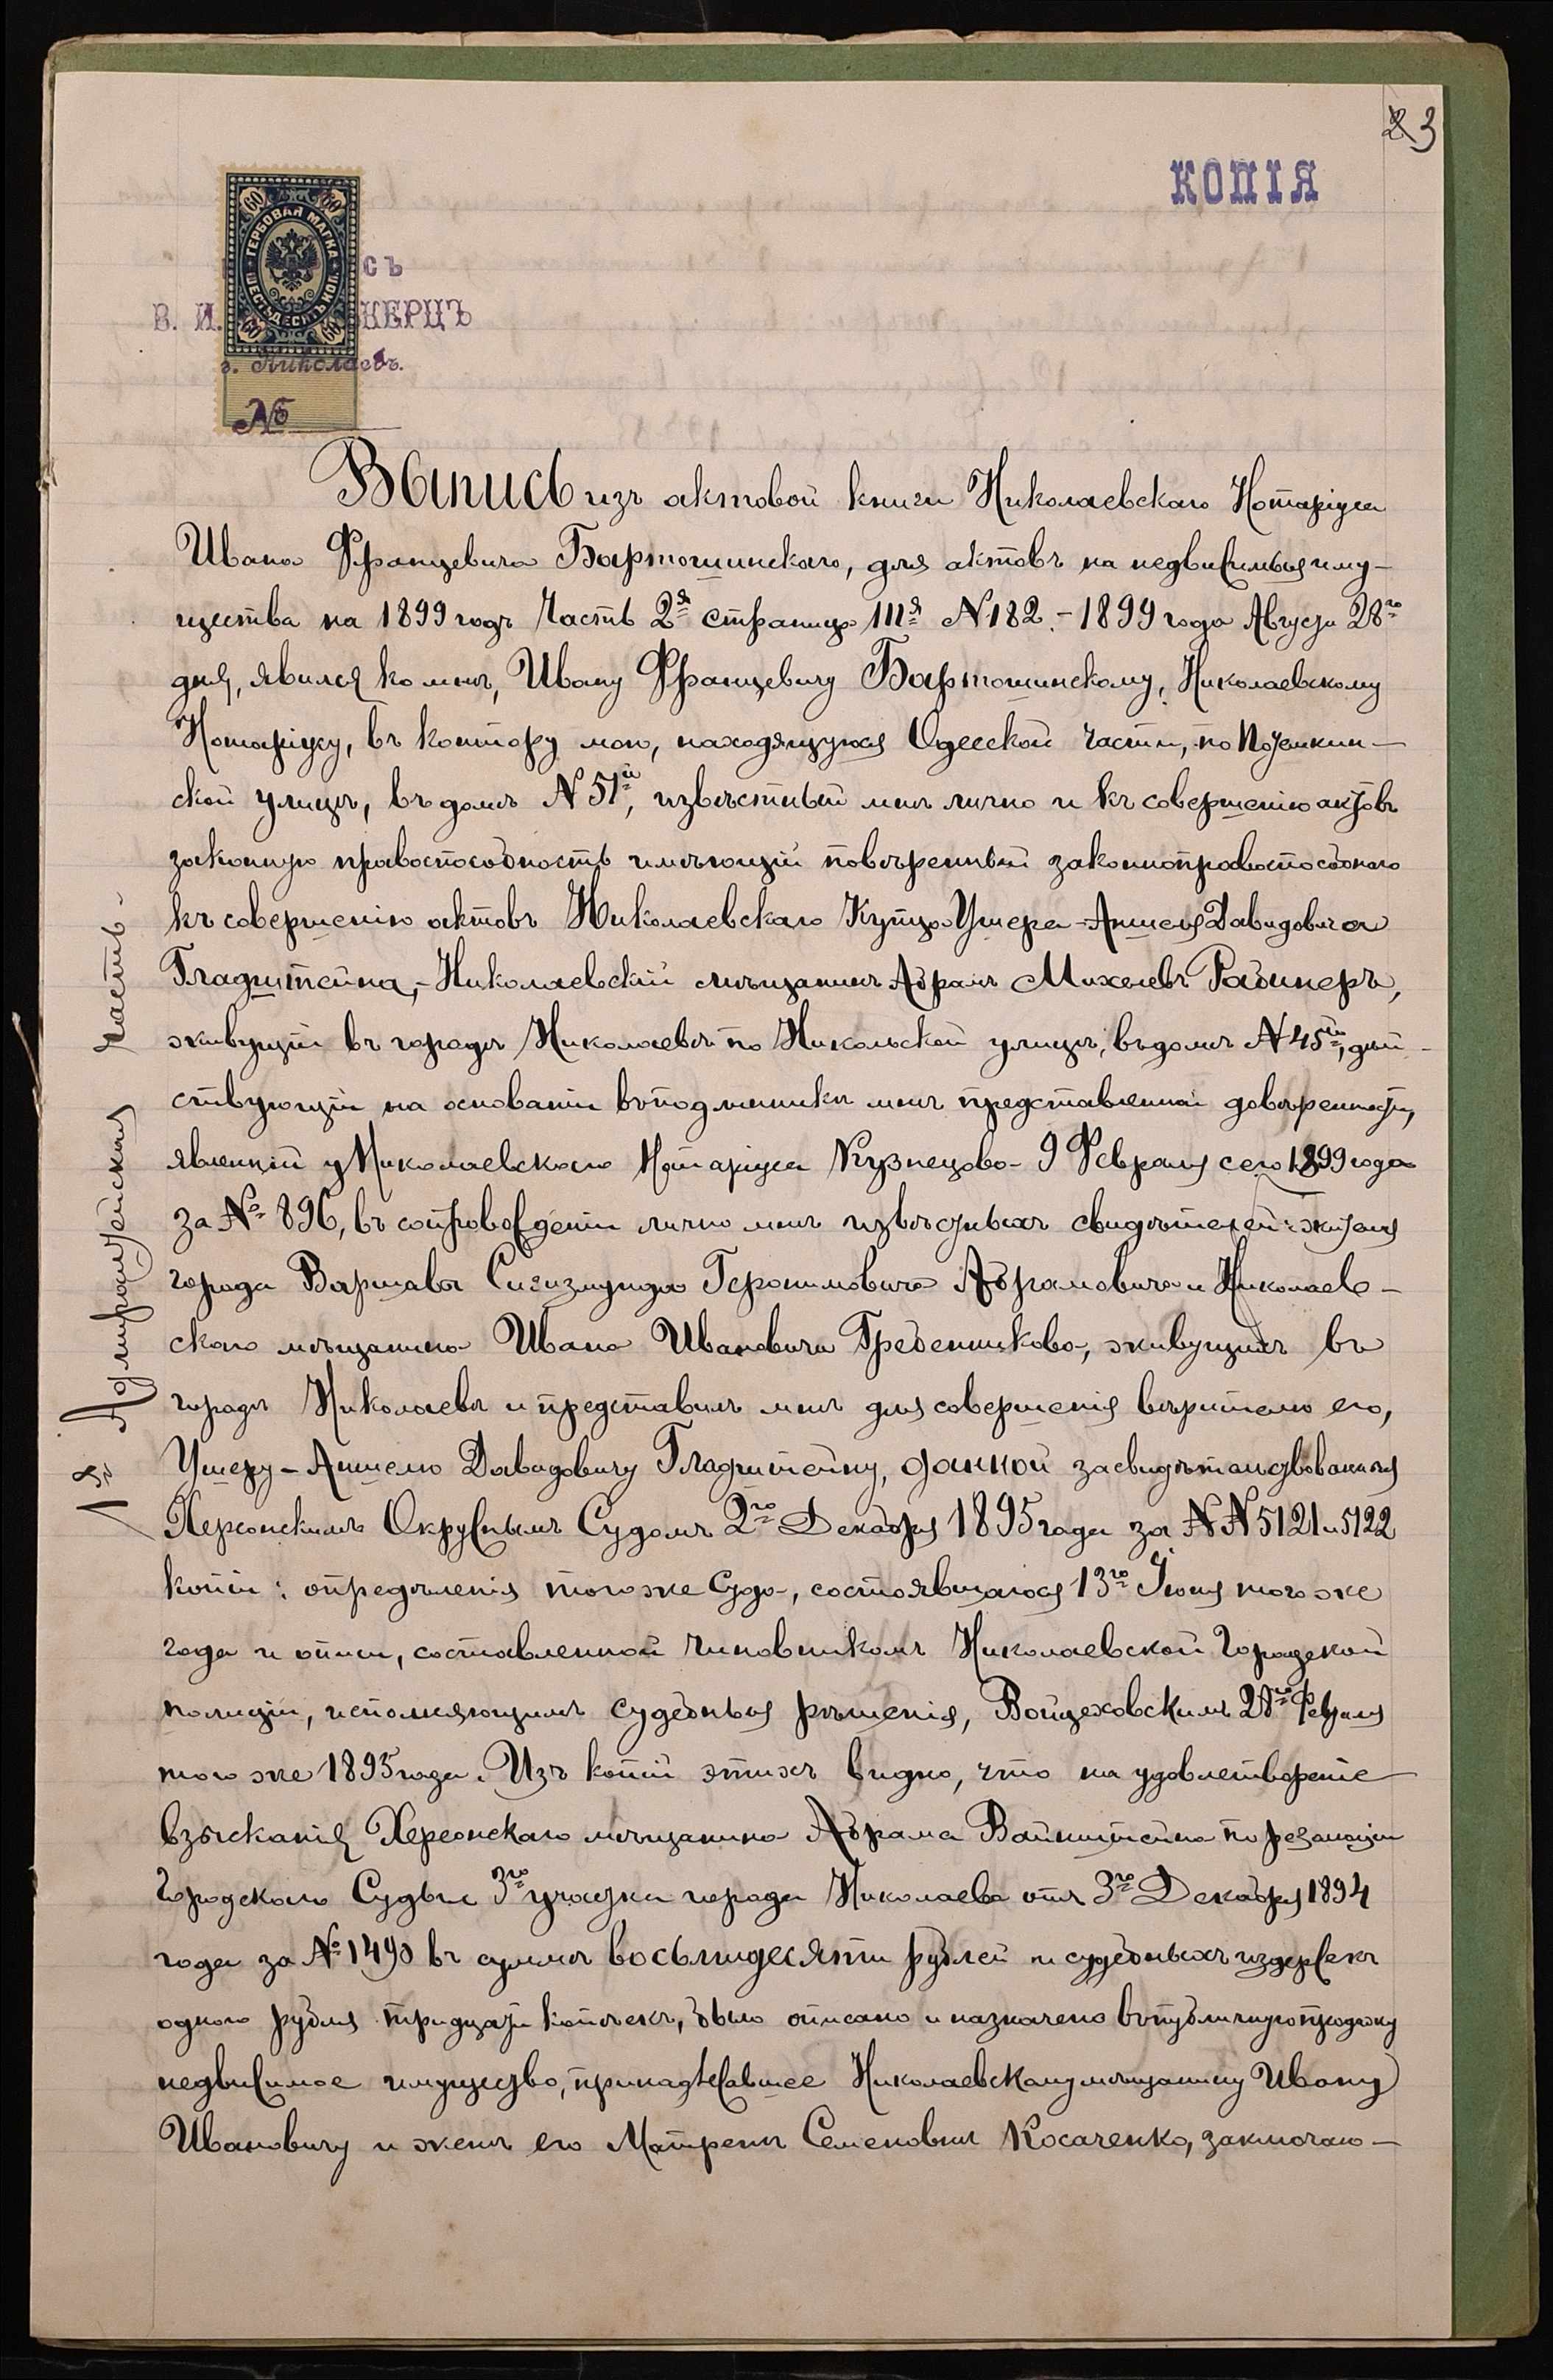 23
КОПІЯ
ГЕРБОВАЯ МАРКА
ШЕСТЬДЕСЯТЪ КОП.
60 60 60 60
съ
В. И. КЕРЦЪ
г. Николаевъ.
№
Выпись изъ актовой книги Николаевскаго Нотаріуса
Ивана Францевича Бартошинскаго, для актовъ на недвижимыя иму-
щества на 1899 годъ Часть 2я страница 111я N 182. - 1899 года Августа 28го
дня, явился ко мнѣ, Ивану Францевичу Бартошинскому, Николаевскому
Нотаріусу, въ контору мою, находящуюся Одесской части, по Потемкин-
ской улицѣ, въ домѣ N 51й, извѣстный мнѣ лично и къ совершенію актовъ
законную правоспособность имѣющій повѣренный законноправоспособнаго
къ совершенію актовъ Николаевскаго Купца Ушера-Аншеля Давидовича
Гладштейна, - Николаевскій мѣщанинъ Абрамъ Михелевъ Рабинеръ,
живущій въ городѣ Николаевѣ по Никольской улицѣ, въ домѣ N 45й, дѣй-
ствующій на основаніи въ подлинникѣ мнѣ представленной довѣренности,
явленной у Николаевскаго Нотаріуса Кузнецова - 9 Февраля сего 1899 года
за № 896, въ сопровожденіи лично мнѣ извѣстныхъ свидѣтелей: жителя
города Варшавы Сигизмунда Геронимовича Абрамовича и Николаев-
скаго мѣщанина Ивана Ивановича Гребенникова, живущихъ въ
городѣ Николаевѣ и представилъ мнѣ для совершенія вѣрителю его,
Ушеру-Аншелю Давидовичу Гладштейну, данной засвидѣтельствованныя
Херсонскимъ Окружнымъ Судомъ 2го Декабря 1895 года за NN 5121 и 5122
копіи: опредѣленія того же Суда, состоявшагося 13го Іюня того же
года и описи, составленной чиновникомъ Николаевской Городской
полиціи, исполняющимъ судебныя рѣшенія, Войцеховскимъ 28го Февраля
того же 1895 года. Изъ копій этихъ видно, что на удовлетвореніе
взысканія Херсонскаго мѣщанина Абрама Вайнштейна по резолюціи
Городскаго Судьи 3го участка города Николаева отъ 3го Декабря 1894
года за № 1490 въ суммѣ восьмидесяти рублей и судебныхъ издержекъ
одного рубля тридцати копѣекъ, было описано и назначено въ публичную продажу
недвижимое имущество, принадлежавшее Николаевскому мѣщанину Ивану
Ивановичу и женѣ его Матренѣ Семеновнѣ Косаченко, заключаю-
1я Адмиралтейская часть-